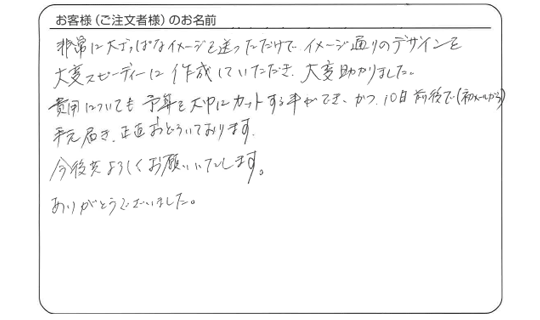 お客様（ご注文者様）のお名前
非常に大ざっぱなイメージを送っただけで イメージ通りのデザインを
大変スピーディーに 作成していただき、大変助かりました。
費用についても 予算を大巾にカットする事ができ、かつ、10日前後で(初メールから)
手元に届き、正直おどろいております。
今後共よろしくお願いいたします。
ありがとうございました。